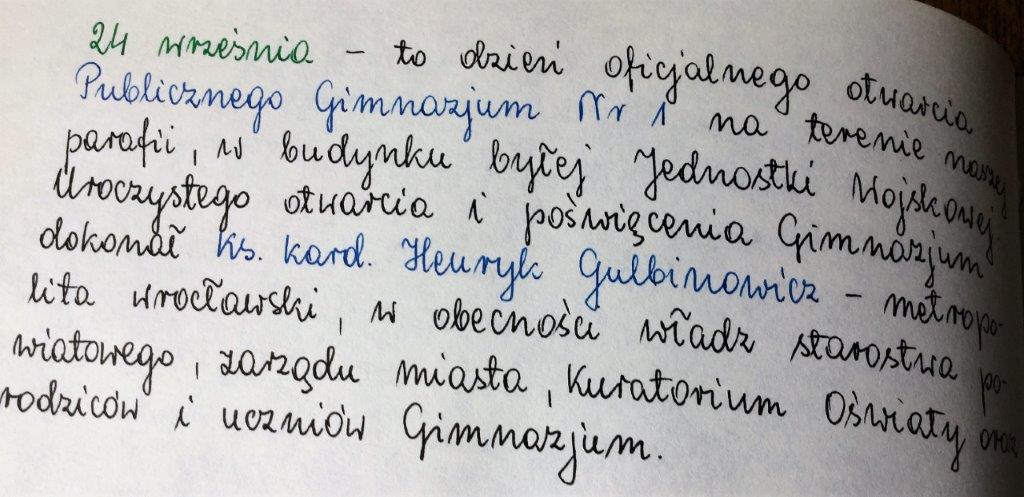 24 września – to dzień oficjalnego otwarcia
Publicznego Gimnazjum Nr 1 na terenie naszej
parafii, w budynku byłej Jednostki Wojskowej.
Uroczystego otwarcia i poświęcenia Gimnazjum
dokonał ks. kard. Henryk Gulbinowicz – metropo-
lita wrocławski, w obecności władz starostwa po-
wiatowego, zarządu miasta, Kuratorium Oświaty oraz
rodziców i uczniów Gimnazjum.